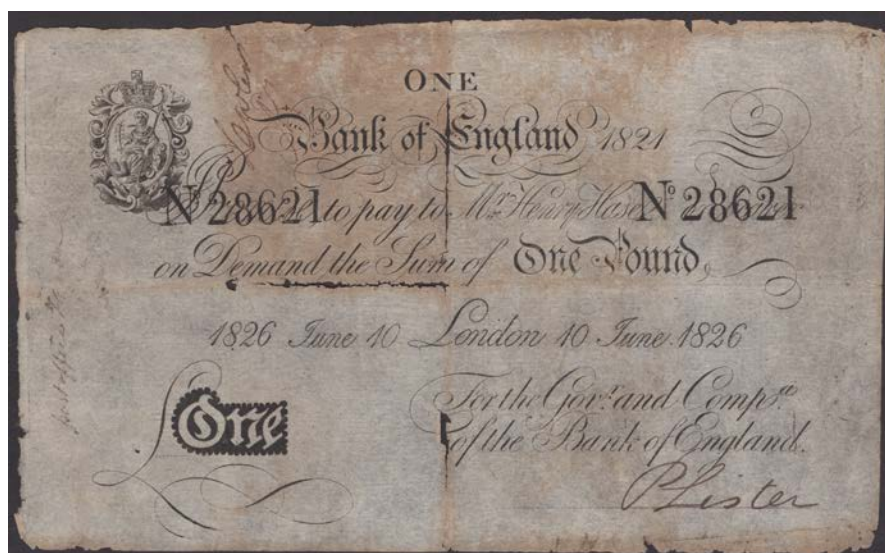 ONE
Bank of England 1821
Nº 28621 to pay to Mr. Henry Hase Nº 28621
on Demand the Sum of One Pound
1826 June 10 London 10 June 1826
For the Govr. and Compa.
One
of the Bank of England.
P Lister